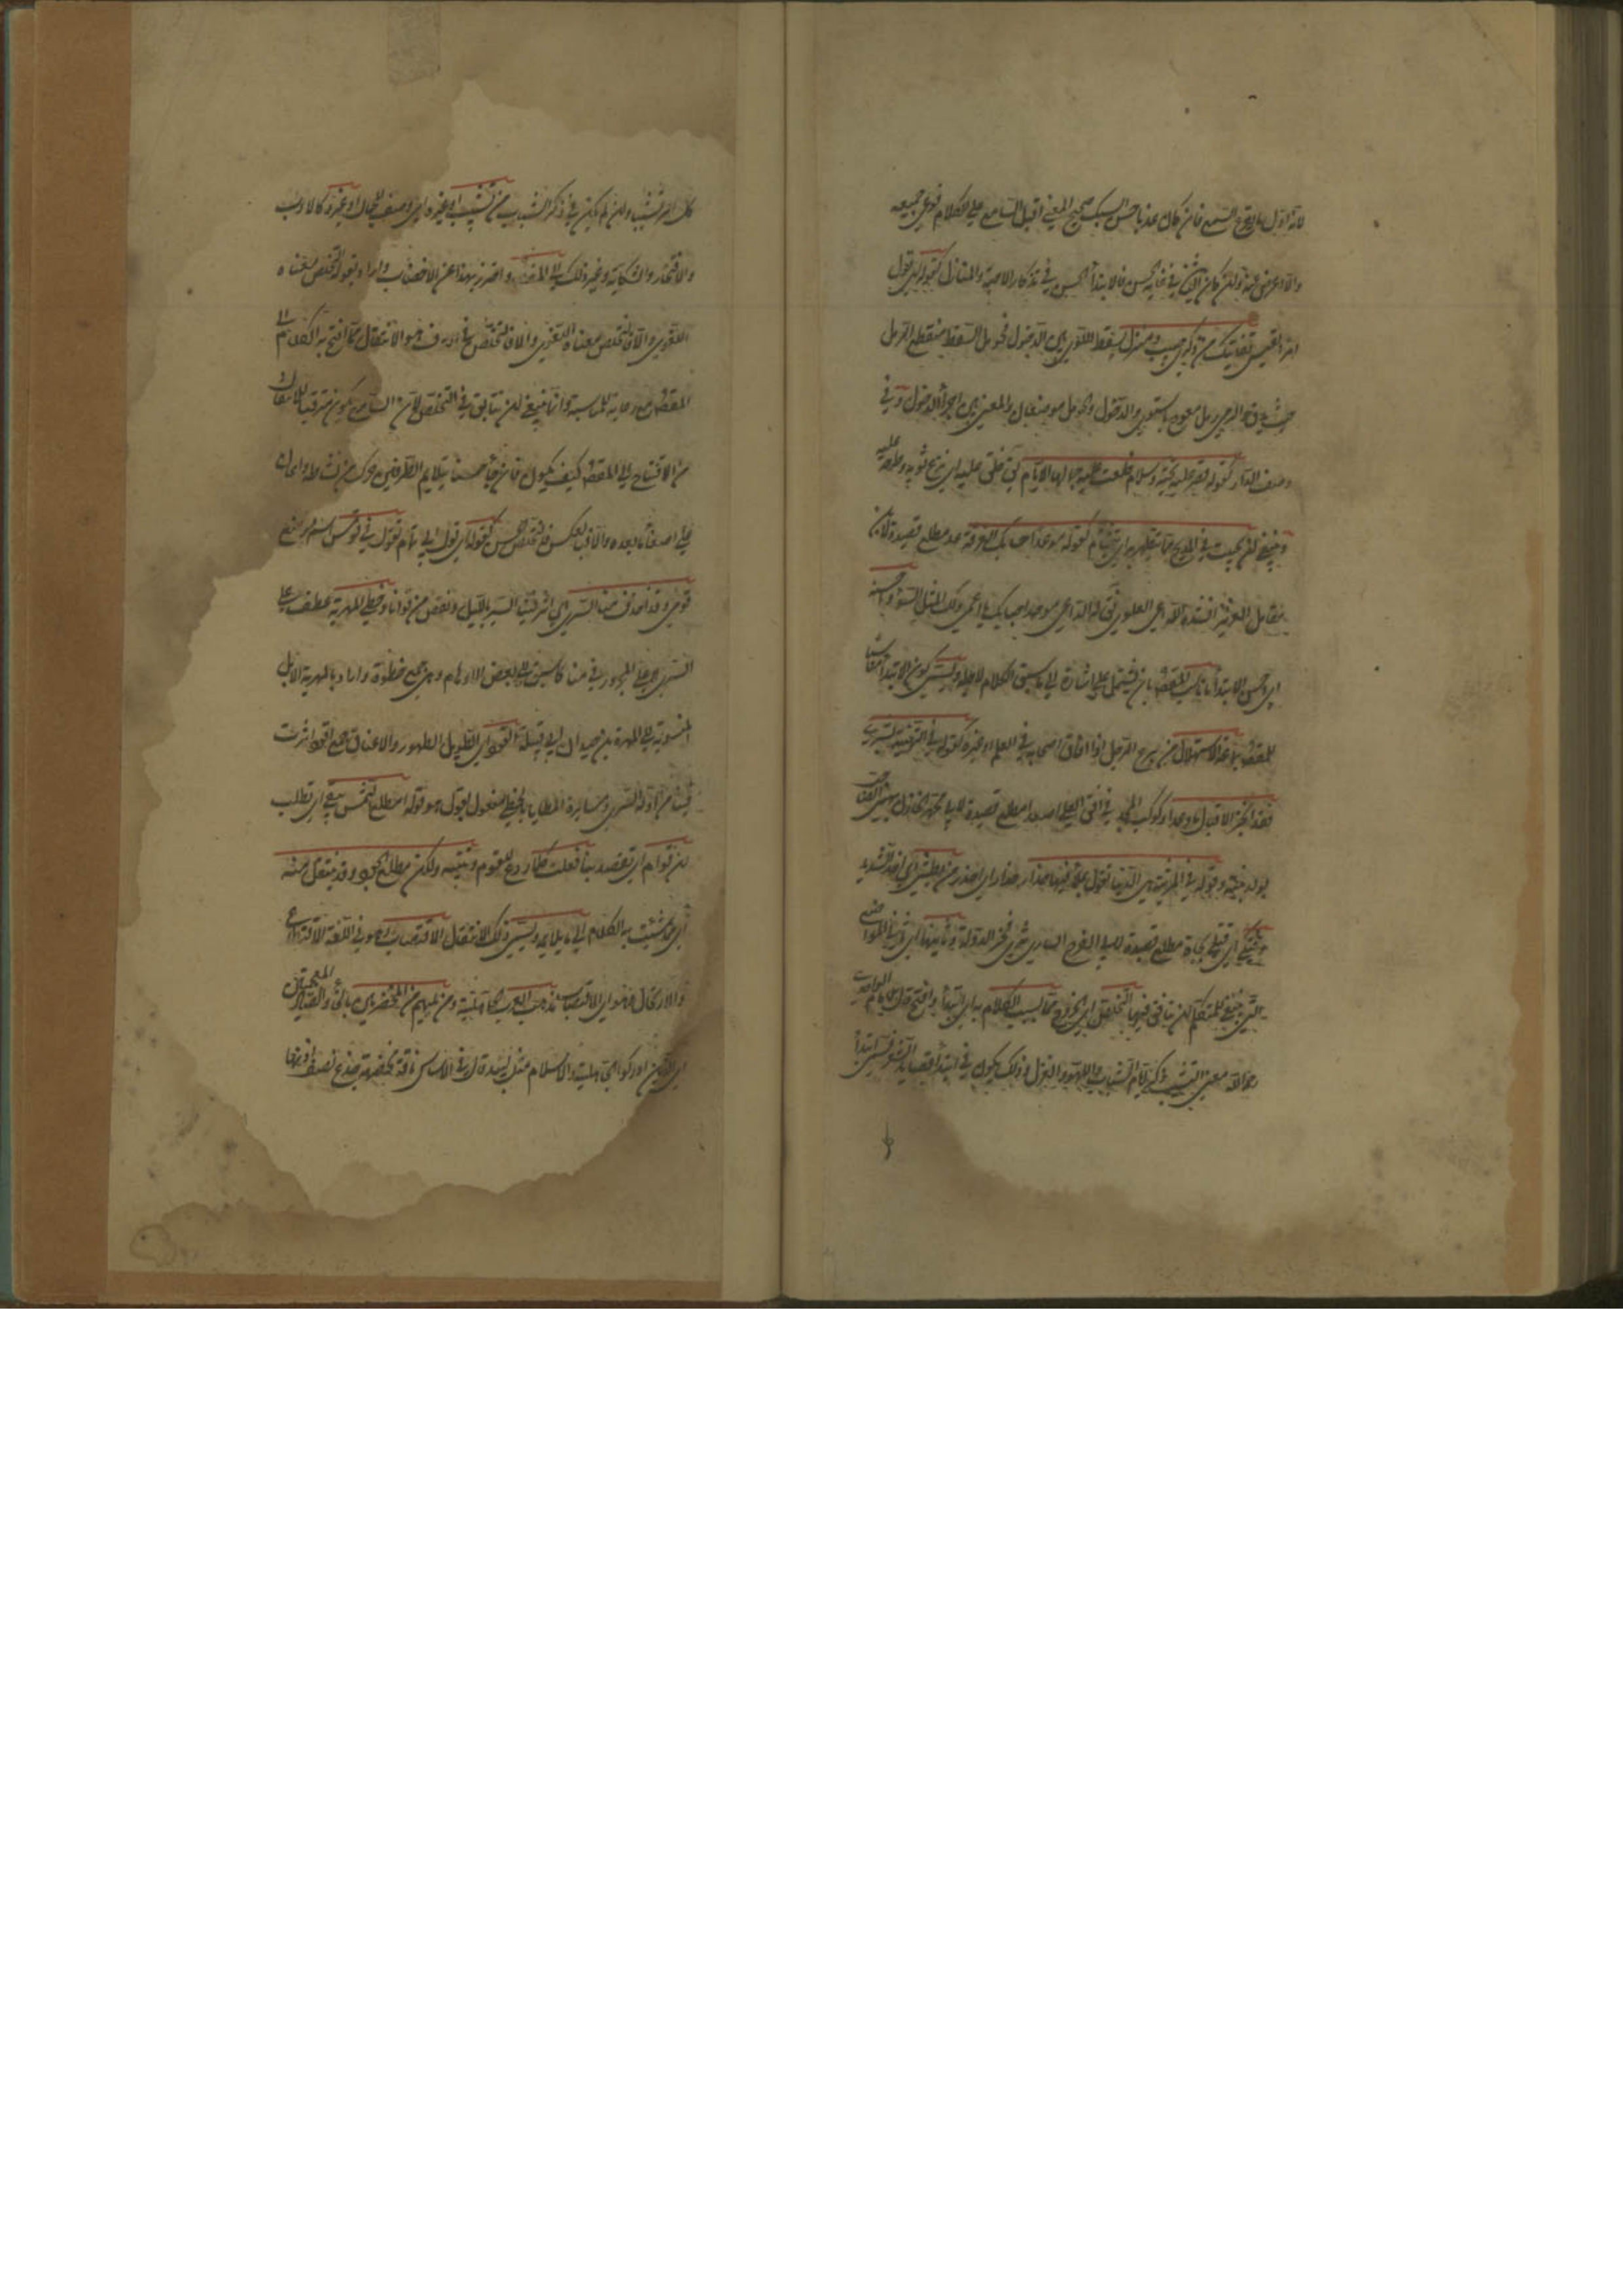 لانه اول ما يقرع السمع فان كان عذبا حسن السبك صحيح المعنى اقبل السامع على الكلام فوعى جميعه
والا اعرض عنه وان كان الباقي في غاية الحسن فالابتدأ الحسن في تذكار الاحبة والمنازل كقوله اي قول
امرء القيس قفا نبك من ذكرى حبيب ومنزل بسقط اللوى بين الدخول فحومل السقط منقطع الرمل
حيث يدق واللوى رمل معوج يلتوي والدخول وحومل موضعان والمعنى بين اجزأ الدخول وفي
وصف الدار كقوله قصر عليه تحية وسلام خلعت عليه جمالها الايام خلع عليه اي نزع ثوبه وطرحه عليه
وينبغي ان يجتنب في المديح مما يتطير به اي يتشأم كقوله موعد احبابك بالفرقة غد مطلع قصيدة لابن
مقاتل الضرير انشده للداعي العلوي فقال له الداعي موعد احبابك يا اعمى ولك المثل السوء واحسنه
اي احسن الابتدأ ما ناسب المقصود بان يشتمل على اشارة الى ما سيق الكلام لاجله ويسمى كون الابتدأ مناسبا
للمقصود براعة الاستهلال من برع الرجل اذا فاق اصحابه في العلم او غيره كقوله في التهنية بشرى
فقد انجز الاقبال ما وعدا وكوكب المجد في افق العلى صعدا مطلع قصيدة لابي محمد الخازن يهنئ الصاحب
بولد لبنته وقوله في المرثية هي الدنيا تقول بملء فيها حذار حذار اي احذر من بطشي اي اخذي الشديد
وفتكي اي قتلي فجأة مطلع قصيدة لابي الفرج الساوي يرثي فخر الدولة وثانيها اي وثاني المواضع
التي ينبغي للمتكلم ان يتأنق فيها التخلص اي الخروج مما شيب الكلام به اي ابتدأ وافتتح قال الامام الواحدي
رحمه الله معنى التشبيب ذكر ايام الشباب واللهو والغزل وذلك يكون في ابتدأ قصايد الشعر فسمى ابتدأ
كل امر تشبيبا وان لم يكن في ذكر الشباب من تشبيب او غيره اي وصف للجمال او غيره كالادب
والافتخار والشكاية وغير ذلك الى المقصود واحترز بهذا عن الاقتضاب واراد بقوله التخلص معناه
اللغوي والا فالتخلص في العرف هو الانتقال مما افتتح به الكلام الى
المقصود مع رعاية المناسبة وانما ينبغي ان يتأنق في التخلص لان السامع يكون مترقبا للانتقال
من الافتتاح الى المقصود كيف يكون فان جأ حسنا متلايم الطرفين حرك من نشاطه واعان
على اصغأ ما بعده والا فبالعكس فالتخلص الحسن كقوله اي قول ابي تمام تقول في قومس اسم موضع
قومي وقد اخذت منا السرى اي اثر فينا السير بالليل ونقص من قوانا وخطى المهرية عطف على
السرى لا على المجرور في منا كما سبق الى بعض الاوهام وهي جمع خطوة واراد بالمهرية الابل
المنسوبة الى مهرة بن حيدان ابي قبيلة القود اي الطويل الظهور والاعناق جمع اقود اي اثرت
فينا مزاولة السرى ومسايرة المطايا بالخطى ومفعول تقول هو قوله امطلع الشمس تبغي اي تطلب
ان تؤم اي تقصد بنا فقلت كلا ردع للقوم وتنبيه ولكن مطلع الجود وقد ينتقل منه
اي مما شبب به الكلام الى ما لا يلايمه ويسمى ذلك الانتقال الاقتضاب وهو في اللغة الاقتطاع
والارتجال وهو اي الاقتضاب مذهب العرب الجاهلية ومن يليهم من المخضرمين بالخأ والضاد المعجمتين
اي الذين ادركوا الجاهلية والاسلام مثل لبيد قال في الاساس ناقة مخضرمة جذع نصف اذنها